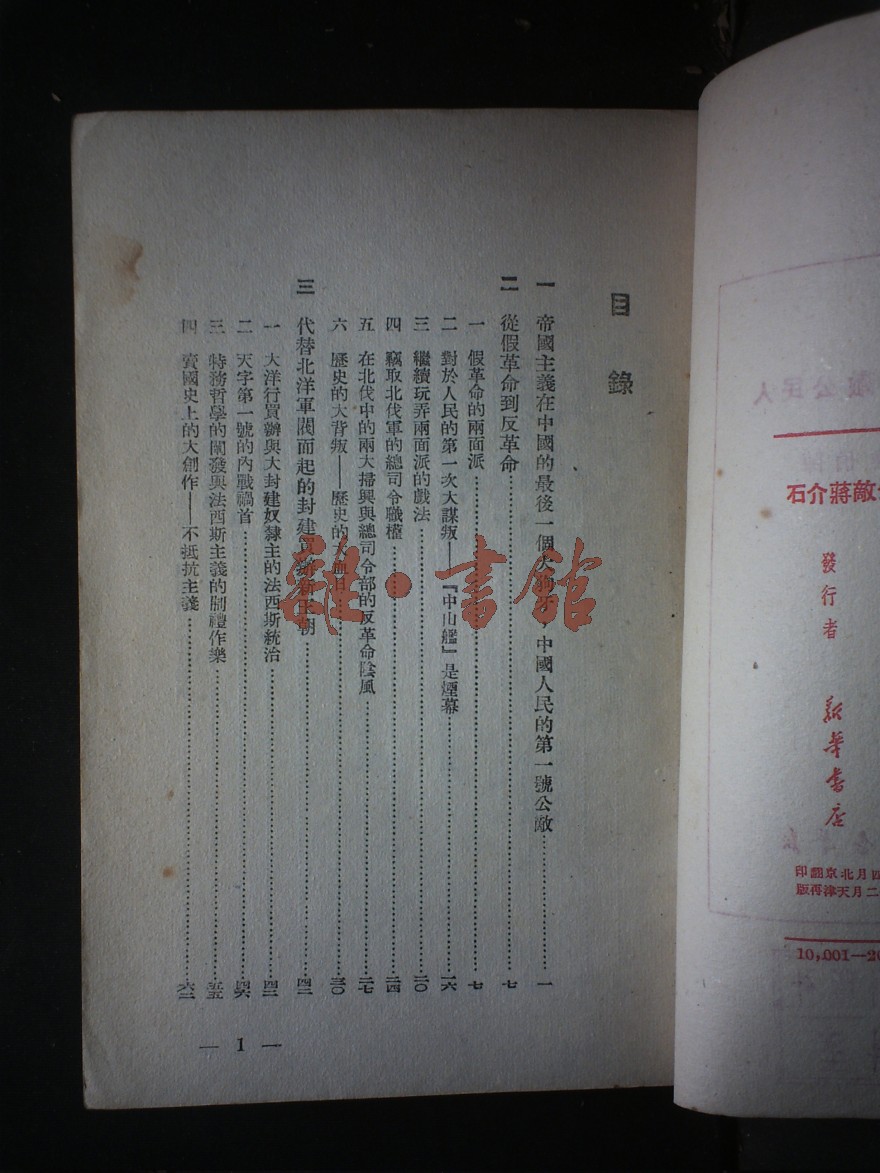 目錄
一 帝國主義在中國的最後一個大狗,中國人民的第一號公敵 一
二 從假革命到反革命 七
一 假革命的兩面派 七
二 對於人民的第一次大謀叛——『中山艦』是煙幕 一六
三 繼續玩弄兩面派的戲法 二〇
四 竊取北伐軍的總司令職權 二四
五 在北伐中的兩大掃興與總司令部的反革命陰風 二七
六 歷史的大背叛——歷史的大血日 三〇
三 代替北洋軍閥而起的封建買辦新王朝 四二
一 大洋行買辦與大封建奴隸主的法西斯統治 四二
二 天字第一號的內戰禍首 四六
三 特務哲學的闡發與法西斯主義的制禮作樂 五五
四 賣國史上的大創作——不抵抗主義 六二
— 1 —
石介蔣敵
發行者
新華書店
印翻京北月四
版再津天月二
10,001—20
雜·書館